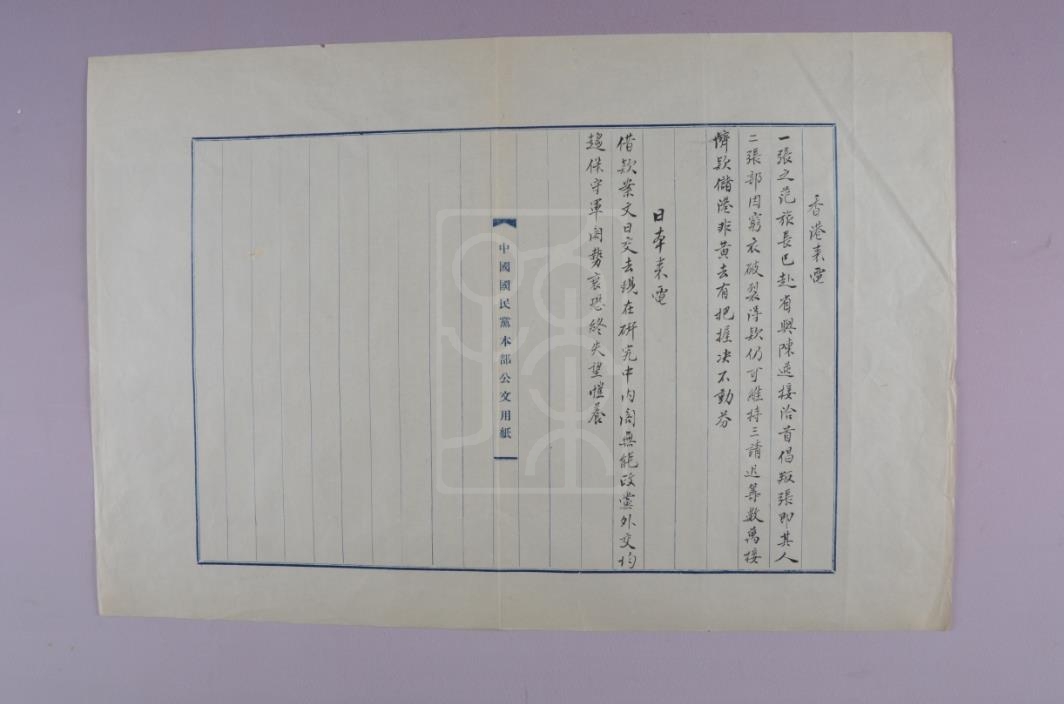 香港来電
一張之范旅長已赴省與陳逆接洽首倡叛張即其人
二張部因窮衣破裂得款仍可維持三請迅籌數萬接
濟款儲港非黄去有把握决不動芬
日本来電
借款案文日交去現在研究中内阁無能政黨外交均
趨保守軍閥勢衰恐終失望愷養
中國國民黨本部公文用紙